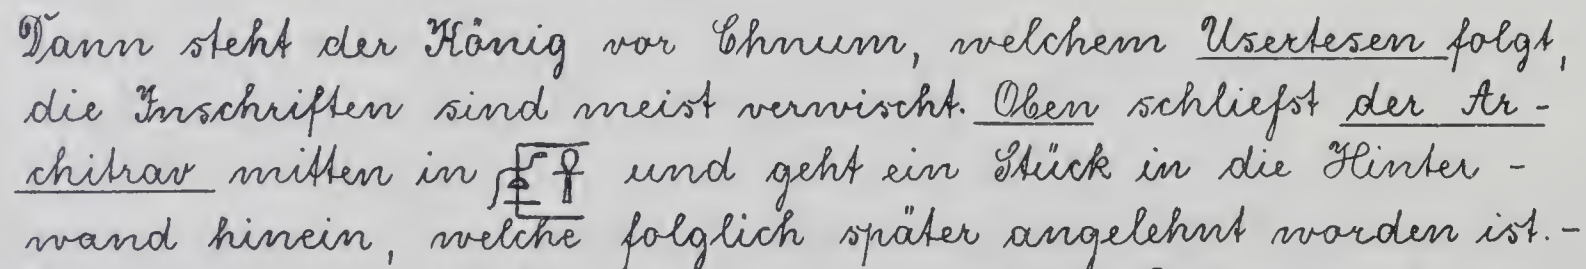 Dann steht der König vor Chnum, welchem Usertesen folgt,
die Inschriften sind meist verwischt. Oben schliefst der Ar-
chitrav mitten in und geht ein Stück in die Hinter-
wand hinein, welche folglich später angelehnt worden ist.-